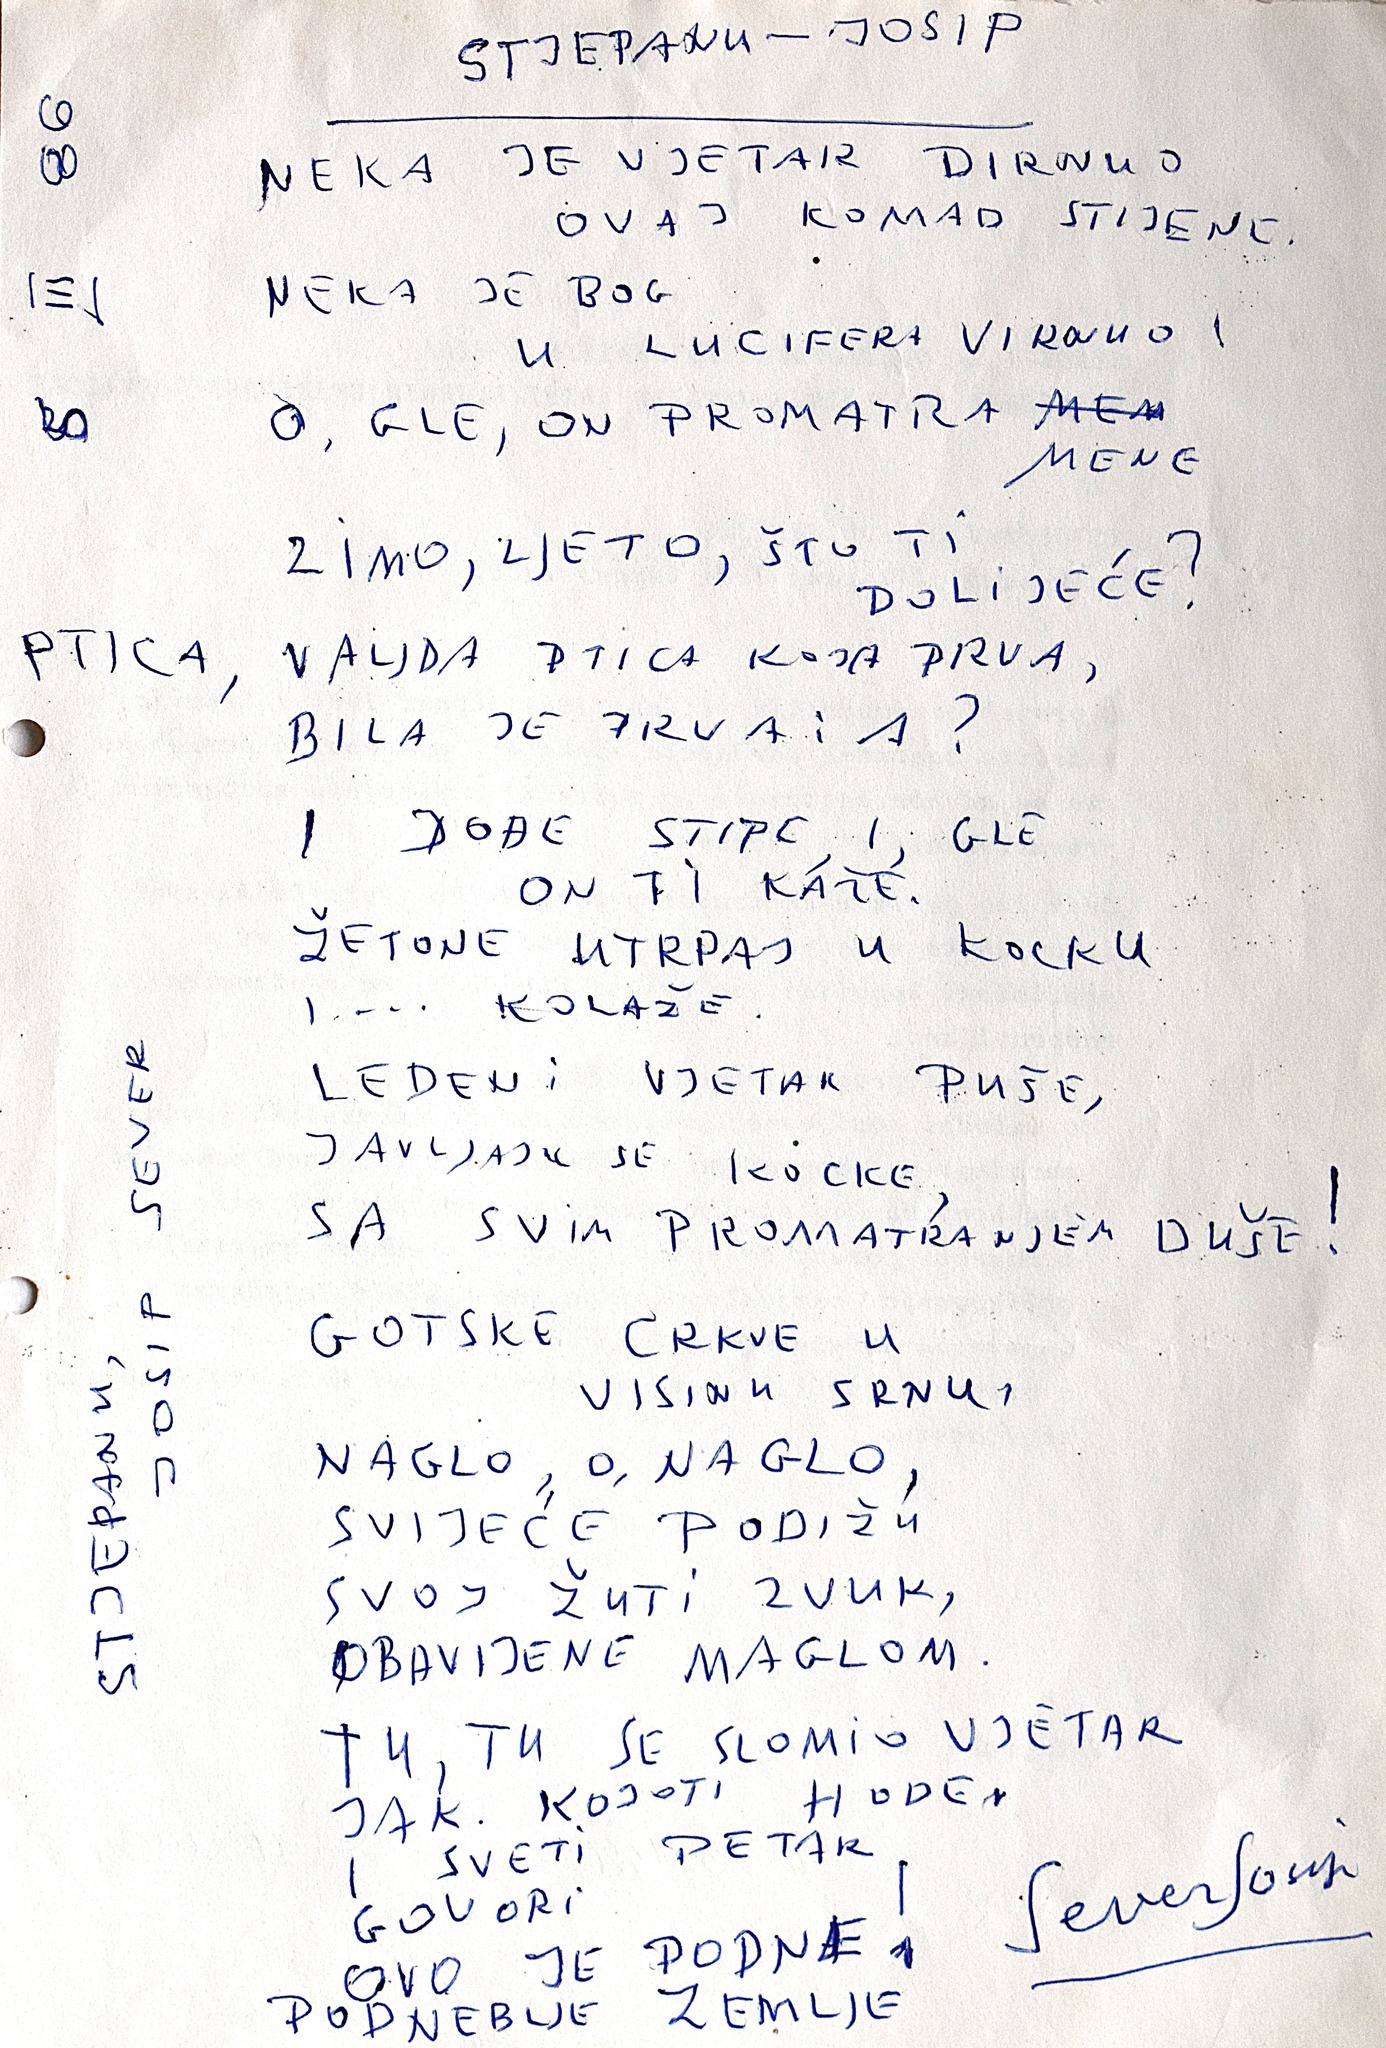 STJEPANU — JOSIP
86
NEKA JE VJETAR DIRNUO
OVAJ KOMAD STIJENE.
NEKA JE BOG
U LUCIFERA VIRNUO!
O, GLE, ON PROMATRA MEM
MENE
ZIMO, LJETO, ŠTO TI
DOLIJEĆE?
PTICA, VALJDA PTICA KOJA PRVA,
BILA JE PRVA I A?
I DOĐE STIPE, I, GLE
ON TI KAŽE.
ŽETONE UTRPAJ U KOCKU
I.... KOLAŽE.
LEDENI VJETAR PUŠE,
JAVLJAJU SE KOCKE,
SA SVIM PROMATRANJEM DUŠE!
GOTSKE CRKVE U
VISINU SRNU,
NAGLO, O, NAGLO,
SVIJEĆE PODIŽU
SVOJ ŽUTI ZVUK,
OBAVIJENE MAGLOM.
TU, TU SE SLOMIO VJETAR
JAK. KOJOTI HODE,
I SVETI PETAR
GOVORI
OVO JE PODNE!
PODNEBLJE ZEMLJE
Sever Josip
STJEPANU,
JOSIP SEVER